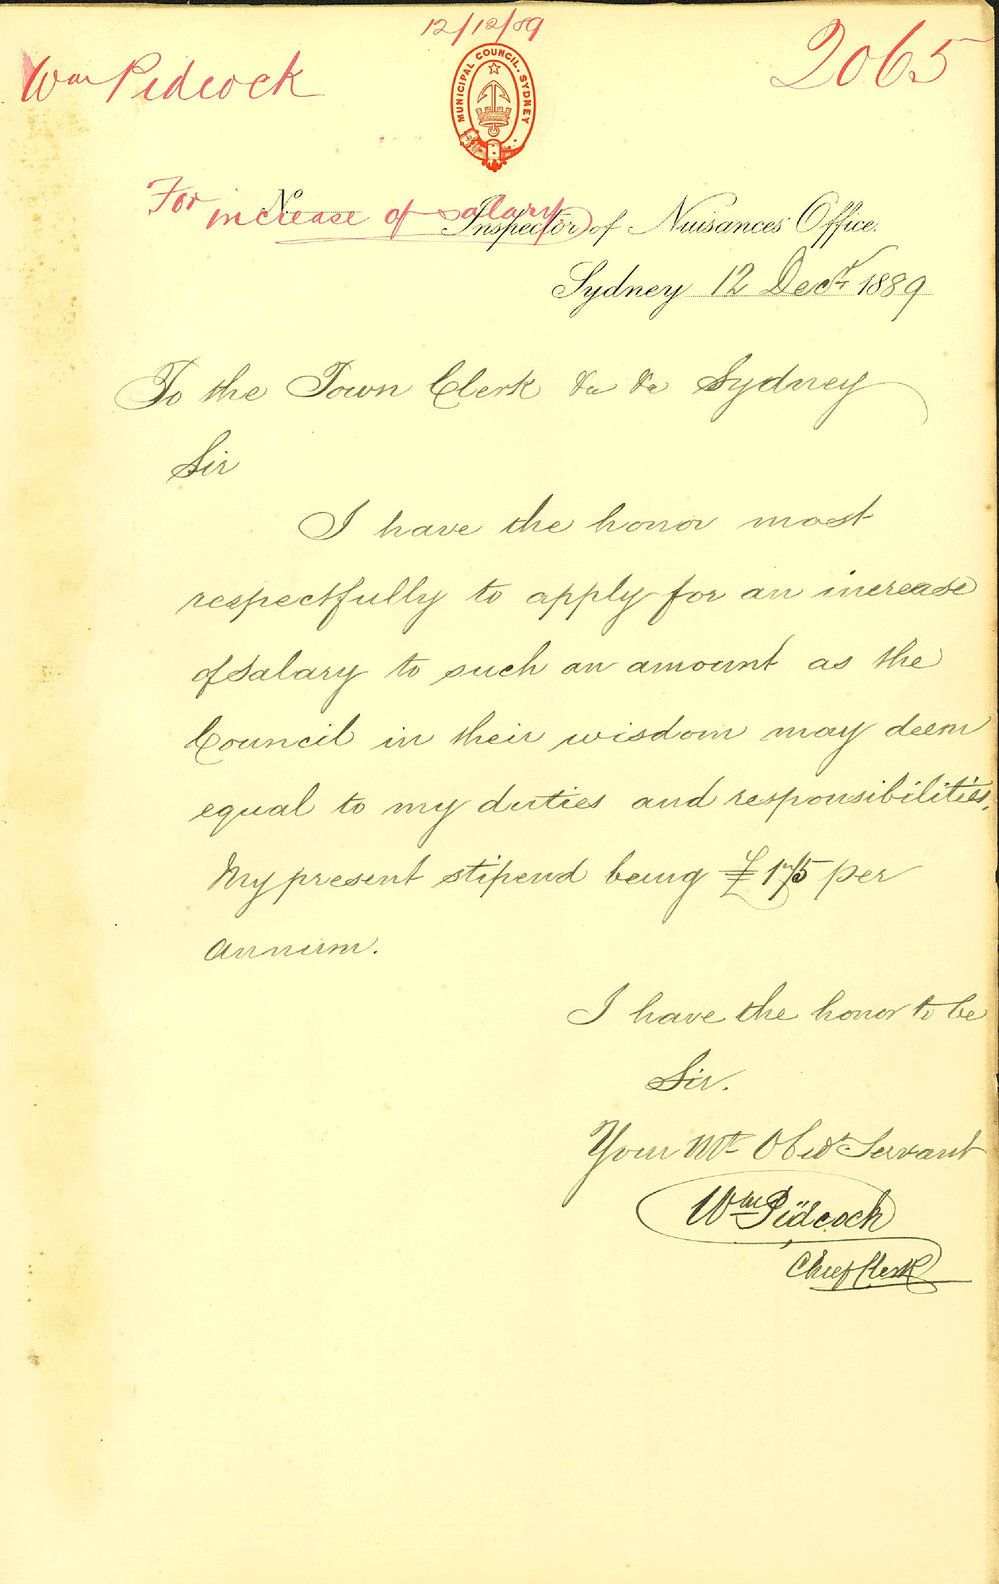 12/12/89
Wm Pidcock
2065
MUNICIPAL COUNCIL. SYDNEY
For increase of salary
No
Inspector of Nuisances Office.
Sydney 12 Decr 1889
To the Town Clerk &c &c Sydney
Sir
I have the honor most
respectfully to apply for an increase
of salary to such an amount as the
Council in their wisdom may deem
equal to my duties and responsibilities.
My present stipend being £175 per
annum.
I have the honor to be
Sir.
Your Mt Obedt Servant
Wm Pidcock
Chief Clerk